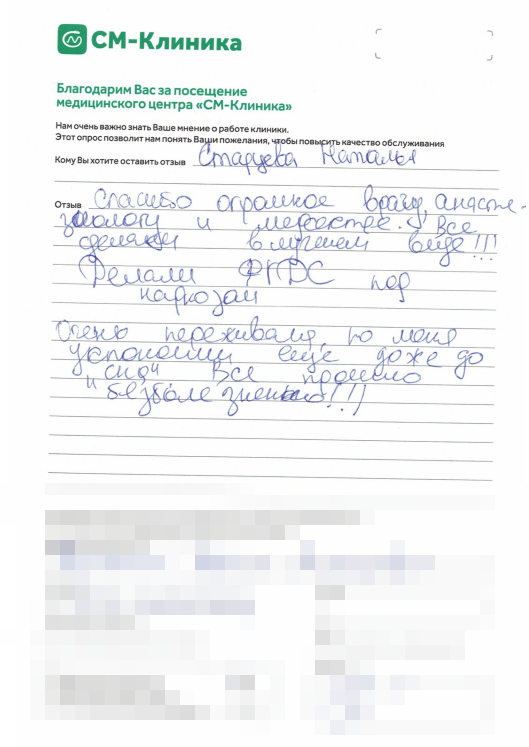 СМ-Клиника
Благодарим Вас за посещение
медицинского центра «СМ-Клиника»
Нам очень важно знать Ваше мнение о работе клиники.
Этот опрос позволит нам понять Ваши пожелания, чтобы повысить качество обслуживания
Кому Вы хотите оставить отзыв Старцева Наталья
Отзыв Спасибо огромное врачу, анасте-
зиологу и медсестре. Все
сделали в лучшем виде!!!
Делали ФГДС под
наркозом
Очень переживала, но меня
успокоили еще даже до
"сна" Все прошло
"безболезненно!!!)